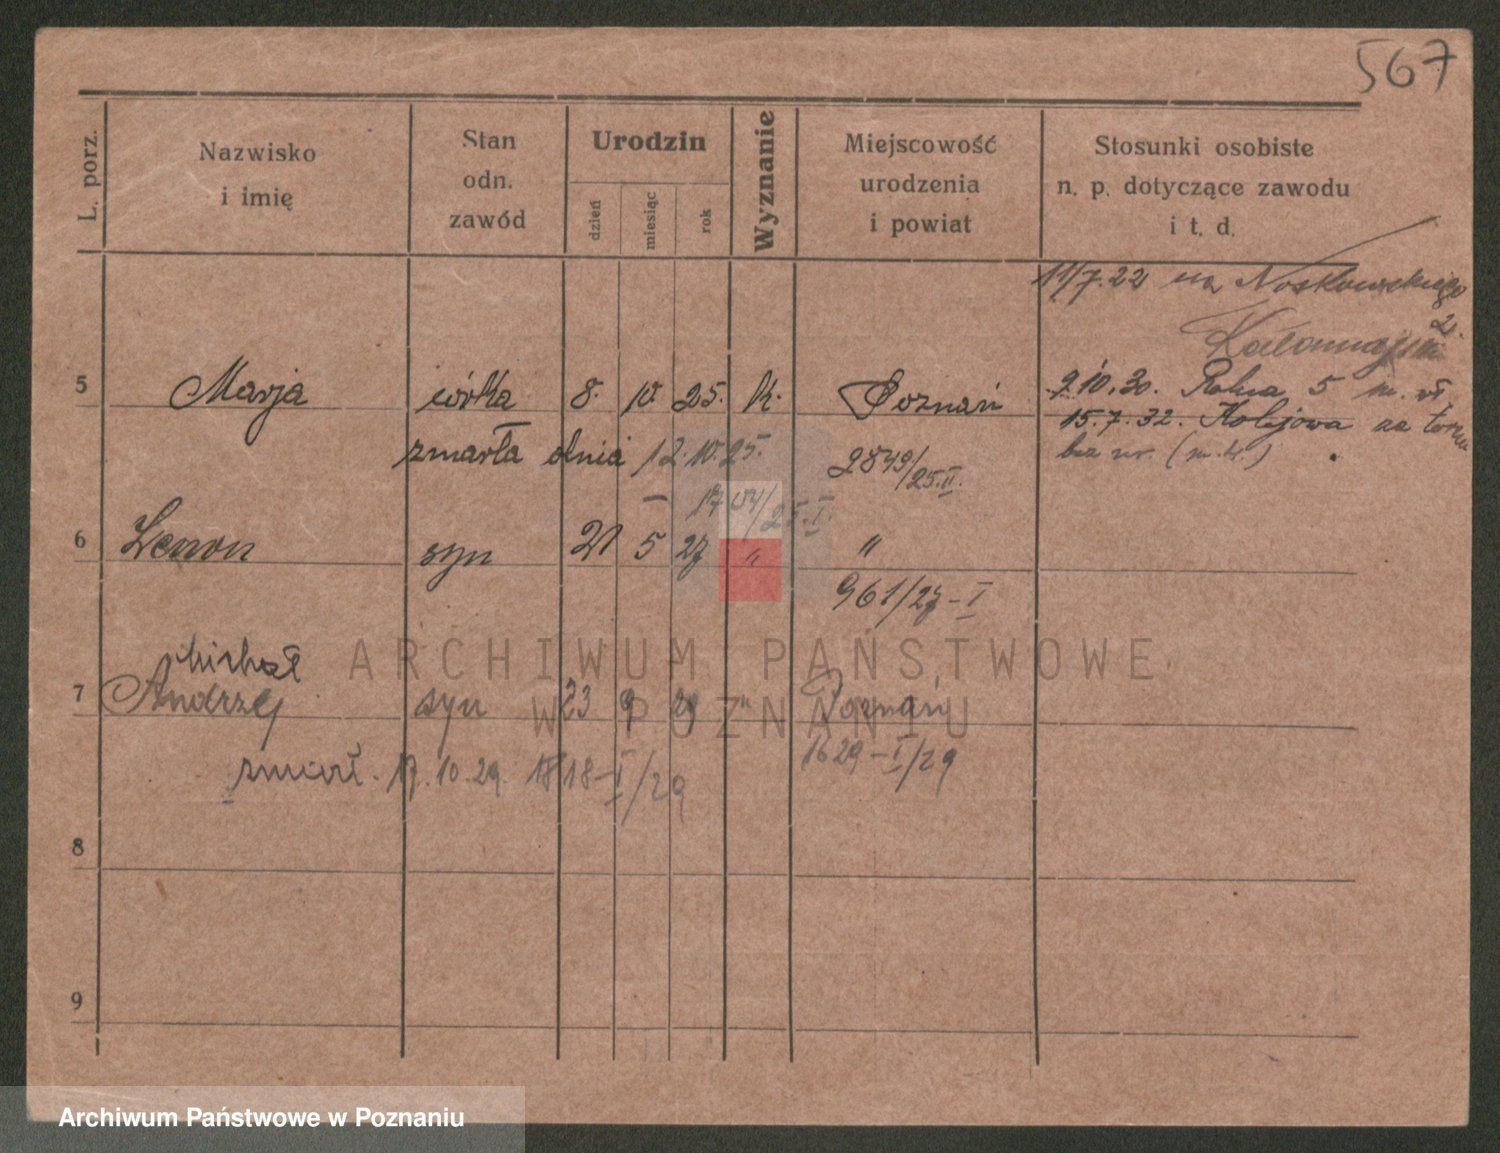 567
L. porz.
Nazwisko
i imię
Stan
odn.
zawód
Urodzin
dzień
miesiąc
rok
Wyznanie
Miejscowość
urodzenia
i powiat
Stosunki osobiste
n. p. dotyczące zawodu
i t. d.
11/7.22 na Noskowskiego
2.
5 Marja córka 8. 10. 25. k. Poznań
9.10.30. Polna 5 m. wł.
15.7.32. Kolejowa na
bez nr. (m.w.)
zmarła dnia 12.10.25. 2849/25.II.
1704/25.I.
6 Zenon syn 21 5 27 " "
961/27-I
Michał
7 Andrzej syn 23 9 29 " Poznań
zmarł. 17.10.29. 1818-I/29 1629-I/29
8
9
ARCHIWUM PAŃSTWOWE
W POZNANIU
Archiwum Państwowe w Poznaniu